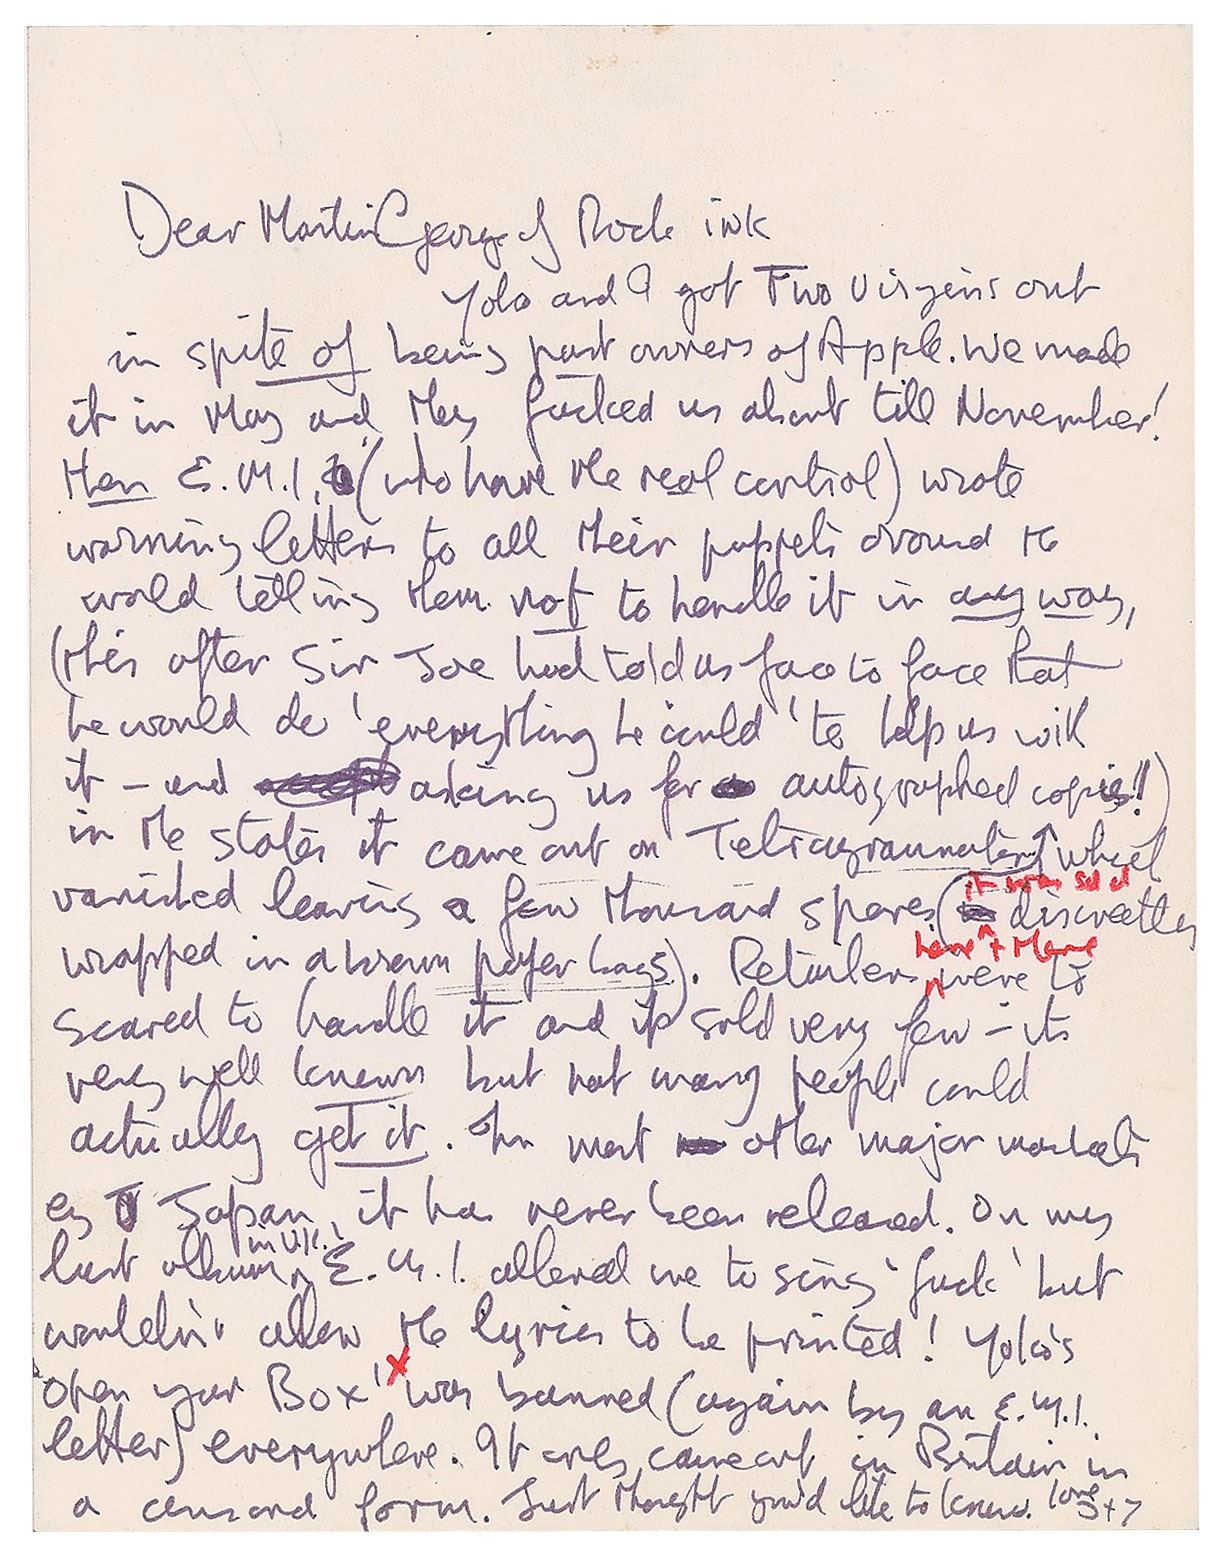 Dear Martin George of Rock ink
Yoko and I got Two Virgins out
in spite of being part owners of Apple. We made
it in May and they fucked us about till November!
then E.M.I. (who have the real control) wrote
warning letters to all their puppets around the
world telling them not to handle it in any way,
(this after Sir Joe had told us face to face that
he would do 'everything he could' to help us with
it – and asking us for autographed copies!!)
in the states it came out on Tetragrammaton which
it was sold
vanished leaving a few thousand spares ( discreetley
here + there
wrapped in a brown paper bags). Retailers were to
scared to handle it and it sold very few – its
very well known but not many people could
actually get it. In most other major markets
eg Japan, it has never been released. On my
in U.K.
last album, E.M.I. allowed me to sing 'fuck' but
wouldn't allow the lyrics to be printed! Yoko's
'open your Box' x was banned (again by an E.M.I.
letter) everywhere. It only came out in Britain in
a censord form. Just thought you'd like to know. love
J+Y